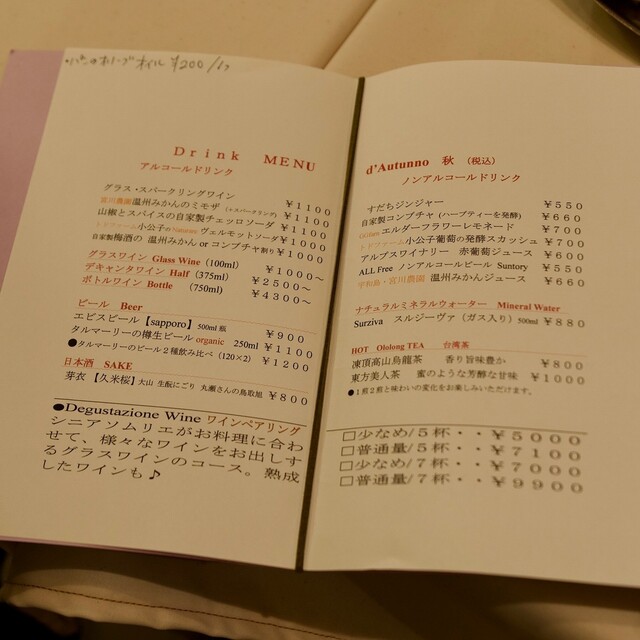 オリーブオイル ¥200
Drink MENU
アルコールドリンク
グラス・スパークリングワイン ¥1100
宮川農園温州みかんのミモザ (+スパークリング) ¥1100
山椒とスパイスの自家製チェッロソーダ ¥1100
トドファーム小公子のヴェルモットソーダ ¥1000
自家製梅酒の 温州みかん or コンブチャ割り ¥1000
グラスワイン Glass Wine (100ml) ¥1000～
デキャンタワイン Half (375ml) ¥2500～
ボトルワイン Bottle (750ml) ¥4300～
ビール Beer
エビスビール【sapporo】500ml 瓶 ¥900
タルマーリーの樽生ビール organic 250ml ¥1100
●タルマーリーのビール2種飲み比べ (120×2) ¥1200
日本酒 SAKE
芽衣 【久米桜】大山 生酛にごり 丸瀬さんの鳥取旭 ¥800
●Degustazione Wine ワインペアリング
シニアソムリエがお料理に合わ
せて、様々なワインをお出しす
るグラスワインのコース。熟成
したワインも♪
d'Autunno 秋 (税込)
ノンアルコールドリンク
すだちジンジャー ¥550
自家製コンブチャ (ハーブティーを発酵) ¥660
エルダーフラワーレモネード ¥700
トドファーム小公子葡萄の発酵スカッシュ ¥700
アルプスワイナリー 赤葡萄ジュース ¥600
ALL Free ノンアルコールビール Suntory ¥550
宇和島・宮川農園 温州みかんジュース ¥660
ナチュラルミネラルウォーター Mineral Water
Surziva スルジーヴァ (ガス入り) 500ml ¥880
HOT Ololong TEA 台湾茶
凍頂高山烏龍茶 香り旨味豊か ¥800
東方美人茶 蜜のような芳醇な甘味 ¥1000
●1煎2煎と味わいの変化をお楽しみいただけます。
□少なめ/5杯・・¥5000
□普通量/5杯・・¥7100
□少なめ/7杯・・¥7000
□普通量/7杯・・¥9900